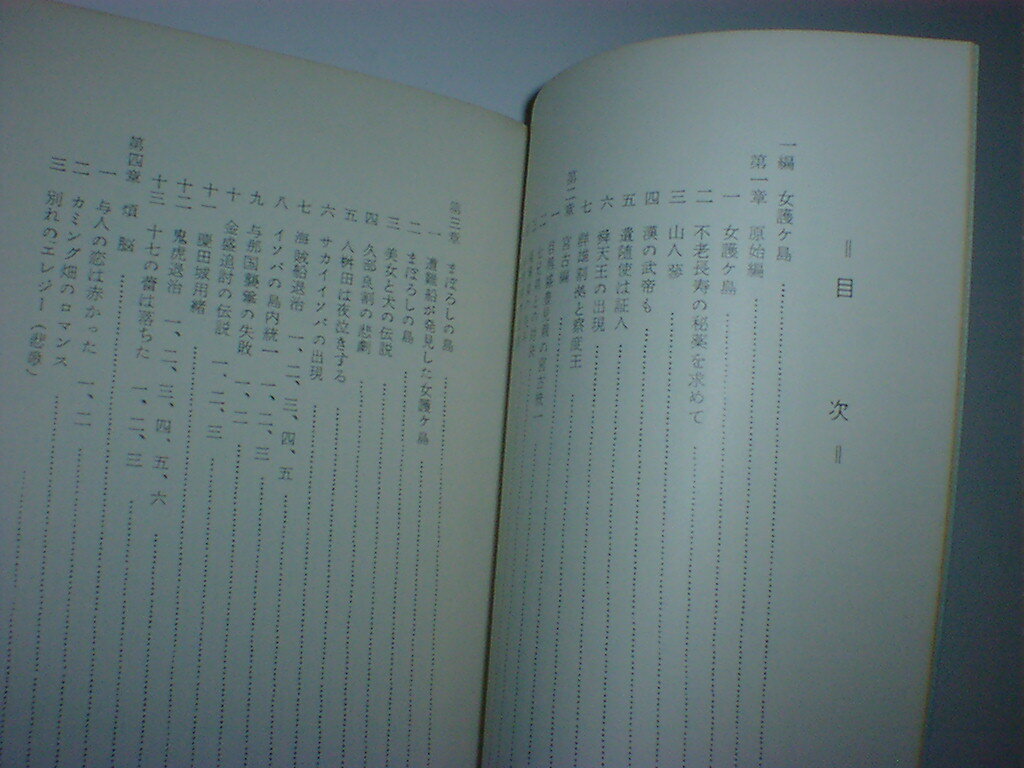 ＝目次＝
一編 女護ヶ島
第一章 原始編
一 女護ヶ島
二 不老長寿の秘薬を求めて
三 山人蔘
四 漢の武帝も
五 遣隨使は証人
六 舜天王の出現
七 群雄割拠と察度王
第二章 宮古編
一
二
第三章 まぼろしの島
一 遭難船が発見した女護ヶ島
二 まぼろしの島
三 美女と犬の伝説
四 久部良割の悲劇
五 人桝田は夜泣きする
六 サカイイソバの出現
七 海賊船退治 一、二、三、四、五
八 イソバの島内統一 一、二、三
九 与那国襲撃の失敗 一、二
十 金盛追討の伝説 一、二、三
十一 田城由緒
十二 鬼虎退治 一、二、三、四、五、六
十三 十七の蕾は落ちた 一、二、三
第四章 煩脳
一 与人の恋は赤かった 一、二
二 カミング畑のロマンス
三 別れのエレジー（悲歌）